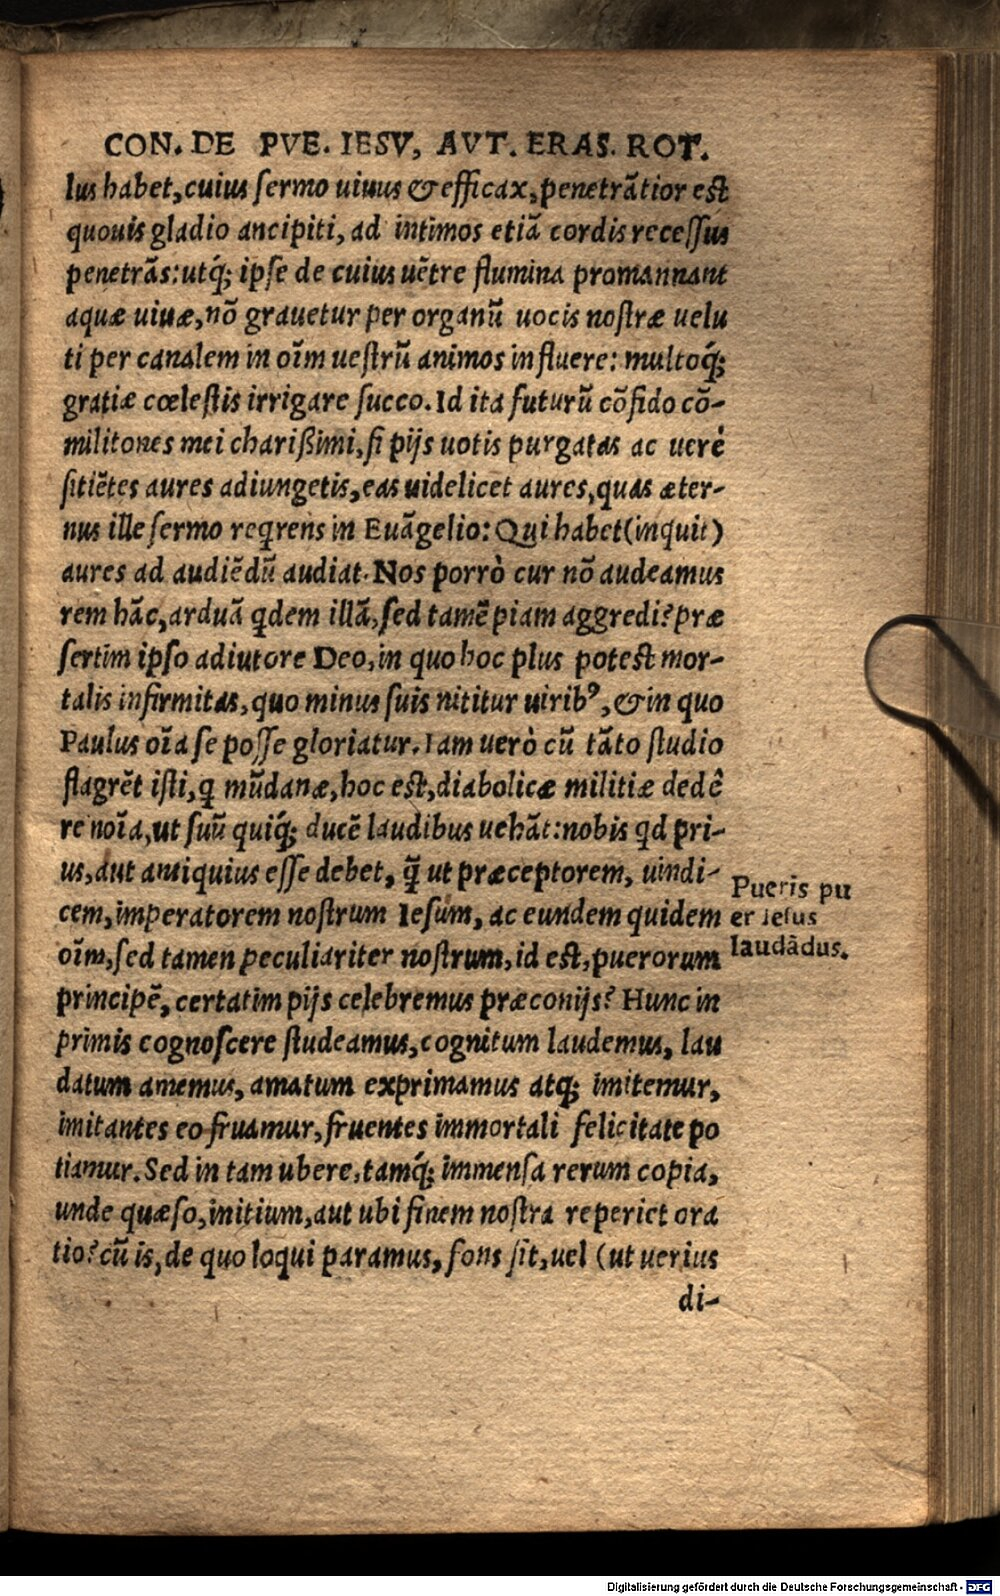 CON. DE PVE. IESV, AVT. ERAS. ROT.
lus habet, cuius sermo uiuus & efficax, penetrãtior est
quouis gladio ancipiti, ad intimos etiã cordis recessus
penetrãs: utq́; ipse de cuius uẽtre flumina promannant
aquæ uiuæ, nõ grauetur per organũ uocis nostræ uelu
ti per canalem in oĩm uestrũ animos influere: multoq́;
gratiæ cœlestis irrigare succo. Id ita futurũ cõfido cõ-
militones mei charißimi, si pijs uotis purgatas ac uerè
sitiẽtes aures adiungetis, eas uidelicet aures, quas æter-
nus ille sermo reqrens in Euãgelio: Qui habet (inquit)
aures ad audiẽdũ audiat. Nos porrò cur nõ audeamus
rem hãc, arduã qdem illã, sed tamẽ piam aggredi? præ
sertim ipso adiutore Deo, in quo hoc plus potest mor-
talis infirmitas, quo minus suis nititur uirib⁹, & in quo
Paulus oĩa se posse gloriatur. Iam uerò cũ tãto studio
flagrẽt isti, q mũdanæ, hoc est, diabolicæ militiæ dedê
re noĩa, ut suũ quiq́; ducẽ laudibus uehãt: nobis qd pri-
us, aut antiquius esse debet, q̃ ut præceptorem, uindi-
cem, imperatorem nostrum Iesum, ac eundem quidem
oĩm, sed tamen peculiariter nostrum, id est, puerorum
principẽ, certatim pijs celebremus præconijs? Hunc in
primis cognoscere studeamus, cognitum laudemus, lau
datum amemus, amatum exprimamus atq; imitemur,
imitantes eo fruamur, fruentes immortali felicitate po
tiamur. Sed in tam ubere, tamq́; immensa rerum copia,
unde quæso, initium, aut ubi finem nostra reperiet ora
tio? cũ is, de quo loqui paramus, fons sit, uel (ut uerius
di-
Pueris pu
er Iesus
laudãdus.
Digitalisierung gefördert durch die Deutsche Forschungsgemeinschaft - DFG